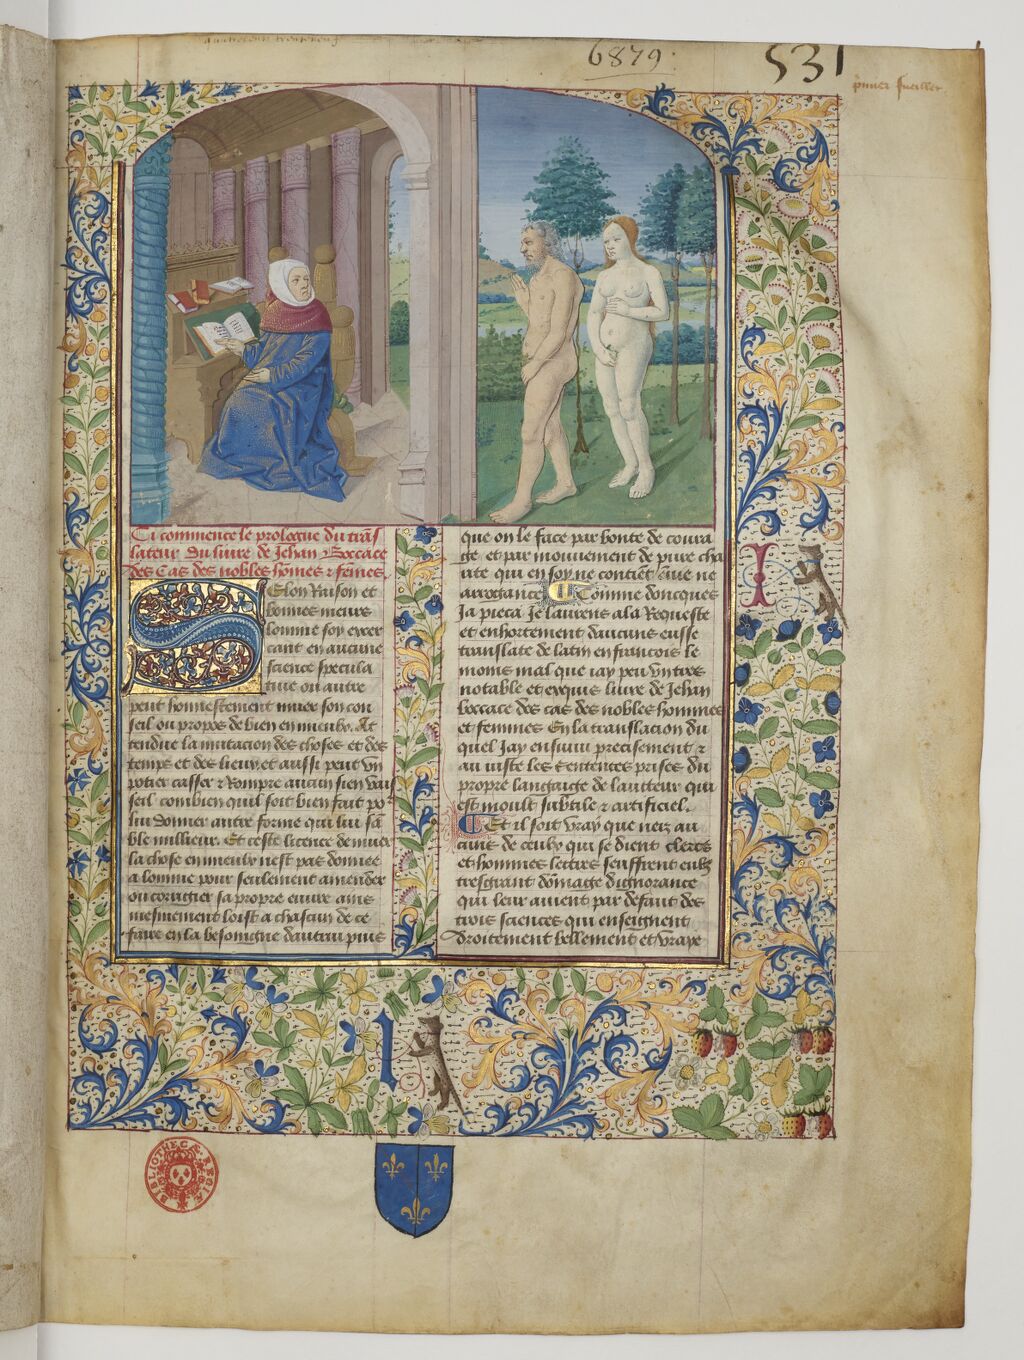 6879.
531
p̃mier fueillet
Ci commence le prologue du trãs
lateur du liure de Jehan Boccace
des Cas des nobles hõmes ⁊ fẽmes.
SElon Raison et
bonnes meurs
lomme soy exer
cant en aucune
science specula
tiue ou autre
peut honnestement muer son con
seil ou propos de bien en mieulx. At
tendue la mutacion des choses et des
temps et des lieux et aussi peut vn
potier casser ⁊ Rompre aucun sien vais
seil combien quil soit bien fait po²
lui donner autre forme qui lui sã
ble meilleur. Et ceste licence de muer
la chose en mieulx nest pas donnee
a lomme pour seulement amender
ou corrigier sa propre euure ains
mesmement loist a chascun de ce
faire en la besongne dautrui puis
que on le face par bonte de coura
ge et par mouuement de pure cha
rite qui en soy ne contiẽt enuie ne
arrogance Comme doncques
Ja pieca Je laurens a la Requeste
et enhortement daucuns eusse
translate de latin en francois le
moins mal que iay peu vn tres
notable et exquis liure de Jehan
boccace des cas des nobles hommes
et femmes En la translacion du
quel Jay ensuiui precisement ⁊
au iuste les sentences prises du
propre langaige de lautteur qui
est moult subtile ⁊ artificiel.
Et il soit vray que nez au
cuns de ceulx qui se dient clercs
et hommes lettres seuffrent eulx
tresgrant dõmage dignorance
qui leur auient par defaut des
trois sciences qui enseignent
droitement bellement et vraye
BIBLIOTHECÆ REGIÆ